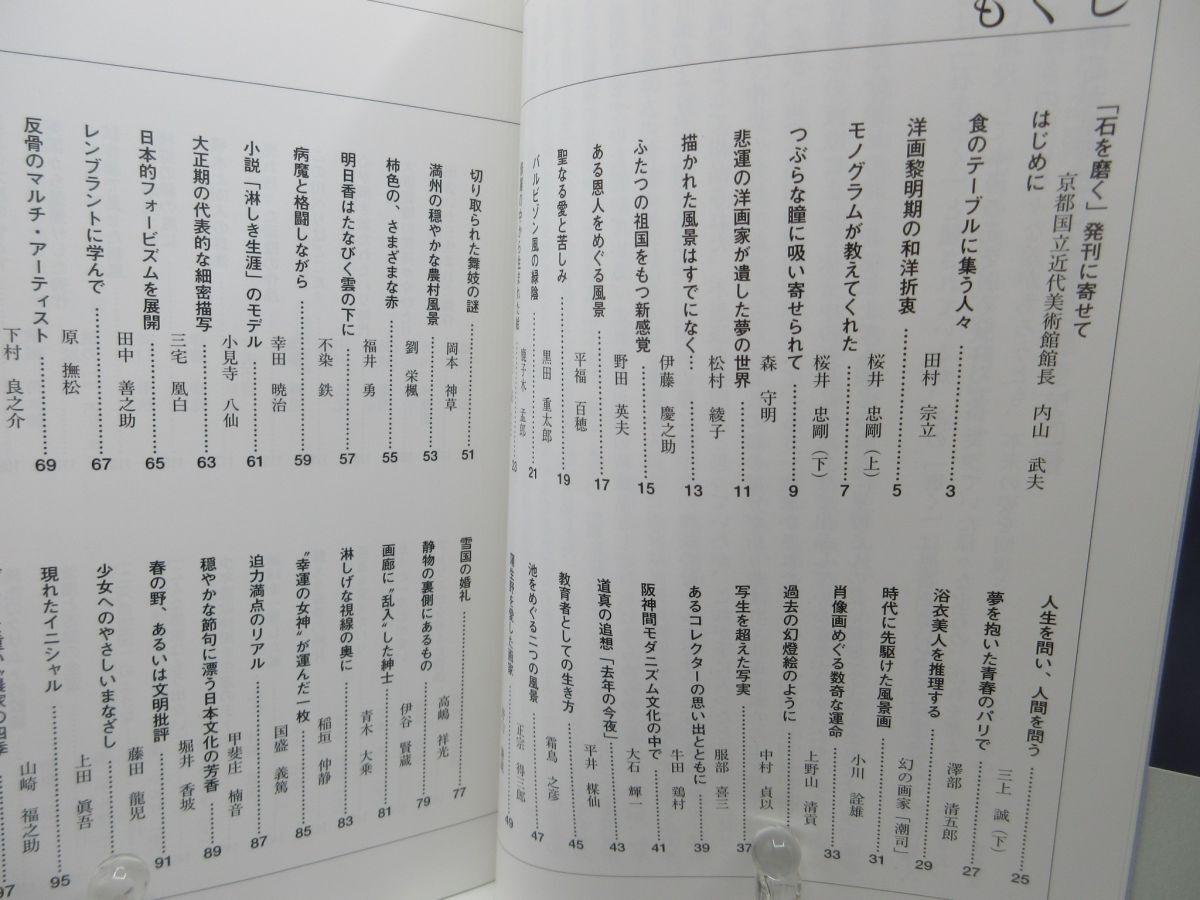 もくじ
「石を磨く」発刊に寄せて
京都国立近代美術館館長　内山　武夫
はじめに
食のテーブルに集う人々………3
田村　宗立
洋画黎明期の和洋折衷………5
桜井　忠剛（上）
モノグラムが教えてくれた………7
桜井　忠剛（下）
つぶらな瞳に吸い寄せられて………9
森　守明
悲運の洋画家が遺した夢の世界………11
松村　綾子
描かれた風景はすでになく…………13
伊藤　慶之助
ふたつの祖国をもつ新感覚………15
野田　英夫
ある恩人をめぐる風景………17
平福　百穂
聖なる愛と苦しみ………19
黒田　重太郎
バルビゾン風の緑陰………21
鹿子木　孟郎
23
人生を問い、人間を問う………25
三上　誠（下）
夢を抱いた青春のパリで………27
澤部　清五郎
浴衣美人を推理する………29
幻の画家「潮司」
時代に先駆けた風景画………31
小川　詮雄
肖像画めぐる数奇な運命………33
上野山　清貢
過去の幻燈絵のように………
中村　貞以
写生を超えた写実………37
服部　喜三
あるコレクターの思い出とともに………39
牛田　鶏村
阪神間モダニズム文化の中で………41
大石　輝一
道真の追想「去年の今夜」………43
平井　楳仙
教育者としての生き方………45
霜鳥　之彦
池をめぐる二つの風景………47
正宗　得三郎
49
切り取られた舞妓の謎………51
岡本　神草
満州の穏やかな農村風景………53
劉　栄楓
柿色の、さまざまな赤………55
福井　勇
明日香はたなびく雲の下に………57
不染　鉄
病魔と格闘しながら………59
幸田　暁冶
小説「淋しき生涯」のモデル………61
小見寺　八仙
大正期の代表的な細密描写………63
三宅　凰白
日本的フォービズムを展開………65
田中　善之助
レンブラントに学んで………67
原　撫松
反骨のマルチ・アーティスト………69
下村　良之介
雪国の婚礼………77
高嶋　祥光
静物の裏側にあるもの………79
伊谷　賢蔵
画廊に“乱入”した紳士………81
青木　大乗
淋しげな視線の奥に………83
稲垣　仲静
“幸運の女神”が運んだ一枚………85
国盛　義篤
迫力満点のリアル………87
甲斐庄　楠音
穏やかな節句に漂う日本文化の芳香………89
堀井　香坡
春の野、あるいは文明批評………91
藤田　龍児
少女へのやさしいまなざし………
上田　眞吾
現れたイニシャル………95
山崎　福之助
97